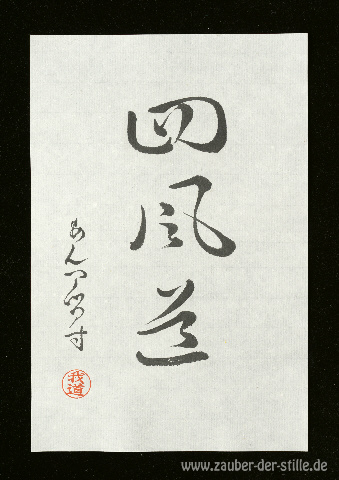 四風道
我道
www.zauber-der-stille.de